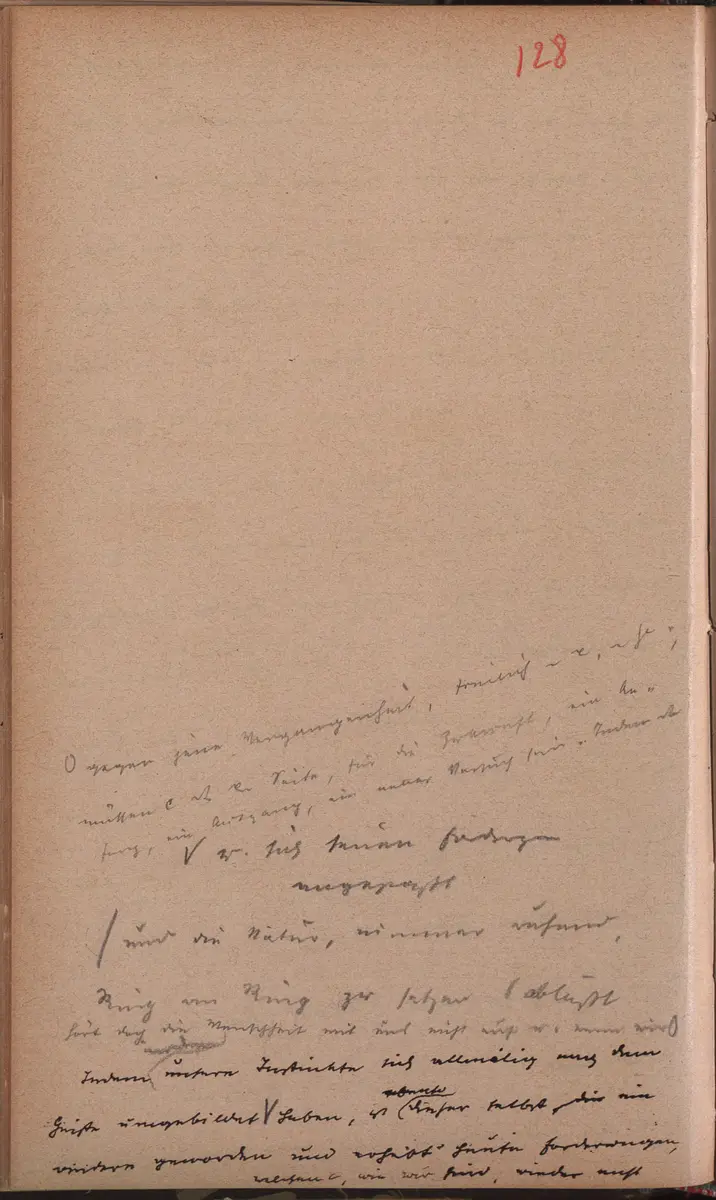 128
gegen jene Vergangenheit, freilich
müssen als Seite, für die Zukunft, ein An-
fang, ein Ausgang, ein neuer Versuch sein Indem
u. sich seinen Forderungen
angepaßt
und die Natur, nimmer ruhend,
Ring an Ring zu setzen abläßt
hört doch die Menschheit mit uns nicht auf u. wenn wir
Indem unsere Instinkte sich allmälig nach dem
Geiste umgebildet haben, ist dieser selbst ein
anderer geworden und erhebt heute Forderungen,
welchen, wie wir sind, wieder nicht